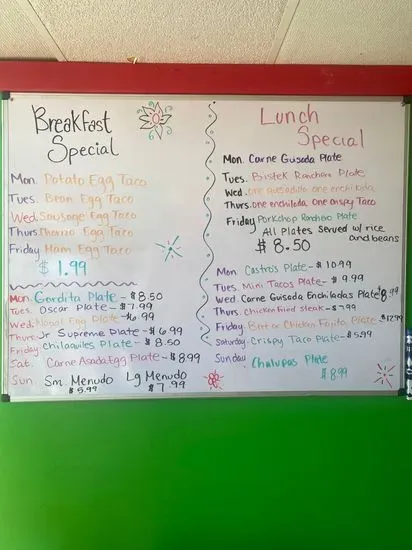 Breakfast
Special
Mon. Potato Egg Taco
Tues. Bean Egg Taco
Wed. Sausage Egg Taco
Thurs. Chorizo Egg Taco
Friday Ham Egg Taco
$1.99
Mon. Gordita Plate - $8.50
Tues. Oscar Plate - $7.99
Wed. Nopal Egg Plate - $6.99
Thurs. Jr Supreme Plate - $6.99
Friday Chilaquiles Plate - $8.50
Sat. Carne Asada Egg Plate - $8.99
Sun Sm. Menudo Lg Menudo
$5.99 $7.99
Lunch
Special
Mon. Carne Guisada Plate
Tues. Bistek Ranchero Plate
Wed. one quesadilla one enchilada
Thurs. one enchilada one Crispy Taco
Friday Porkchop Ranchero Plate
All Plates Served w/ rice
and beans
$8.50
Mon Castro's Plate - $10.99
Tues. Mini Tacos Plate - $9.99
Wed Carne Guisada Enchiladas Plate $8.99
Thurs. Chicken Fried Steak - $7.99
Friday Beef or Chicken Fajita Plate - $12.99
Saturday Crispy Taco Plate - $5.99
Sunday Chalupas Plate
$8.99